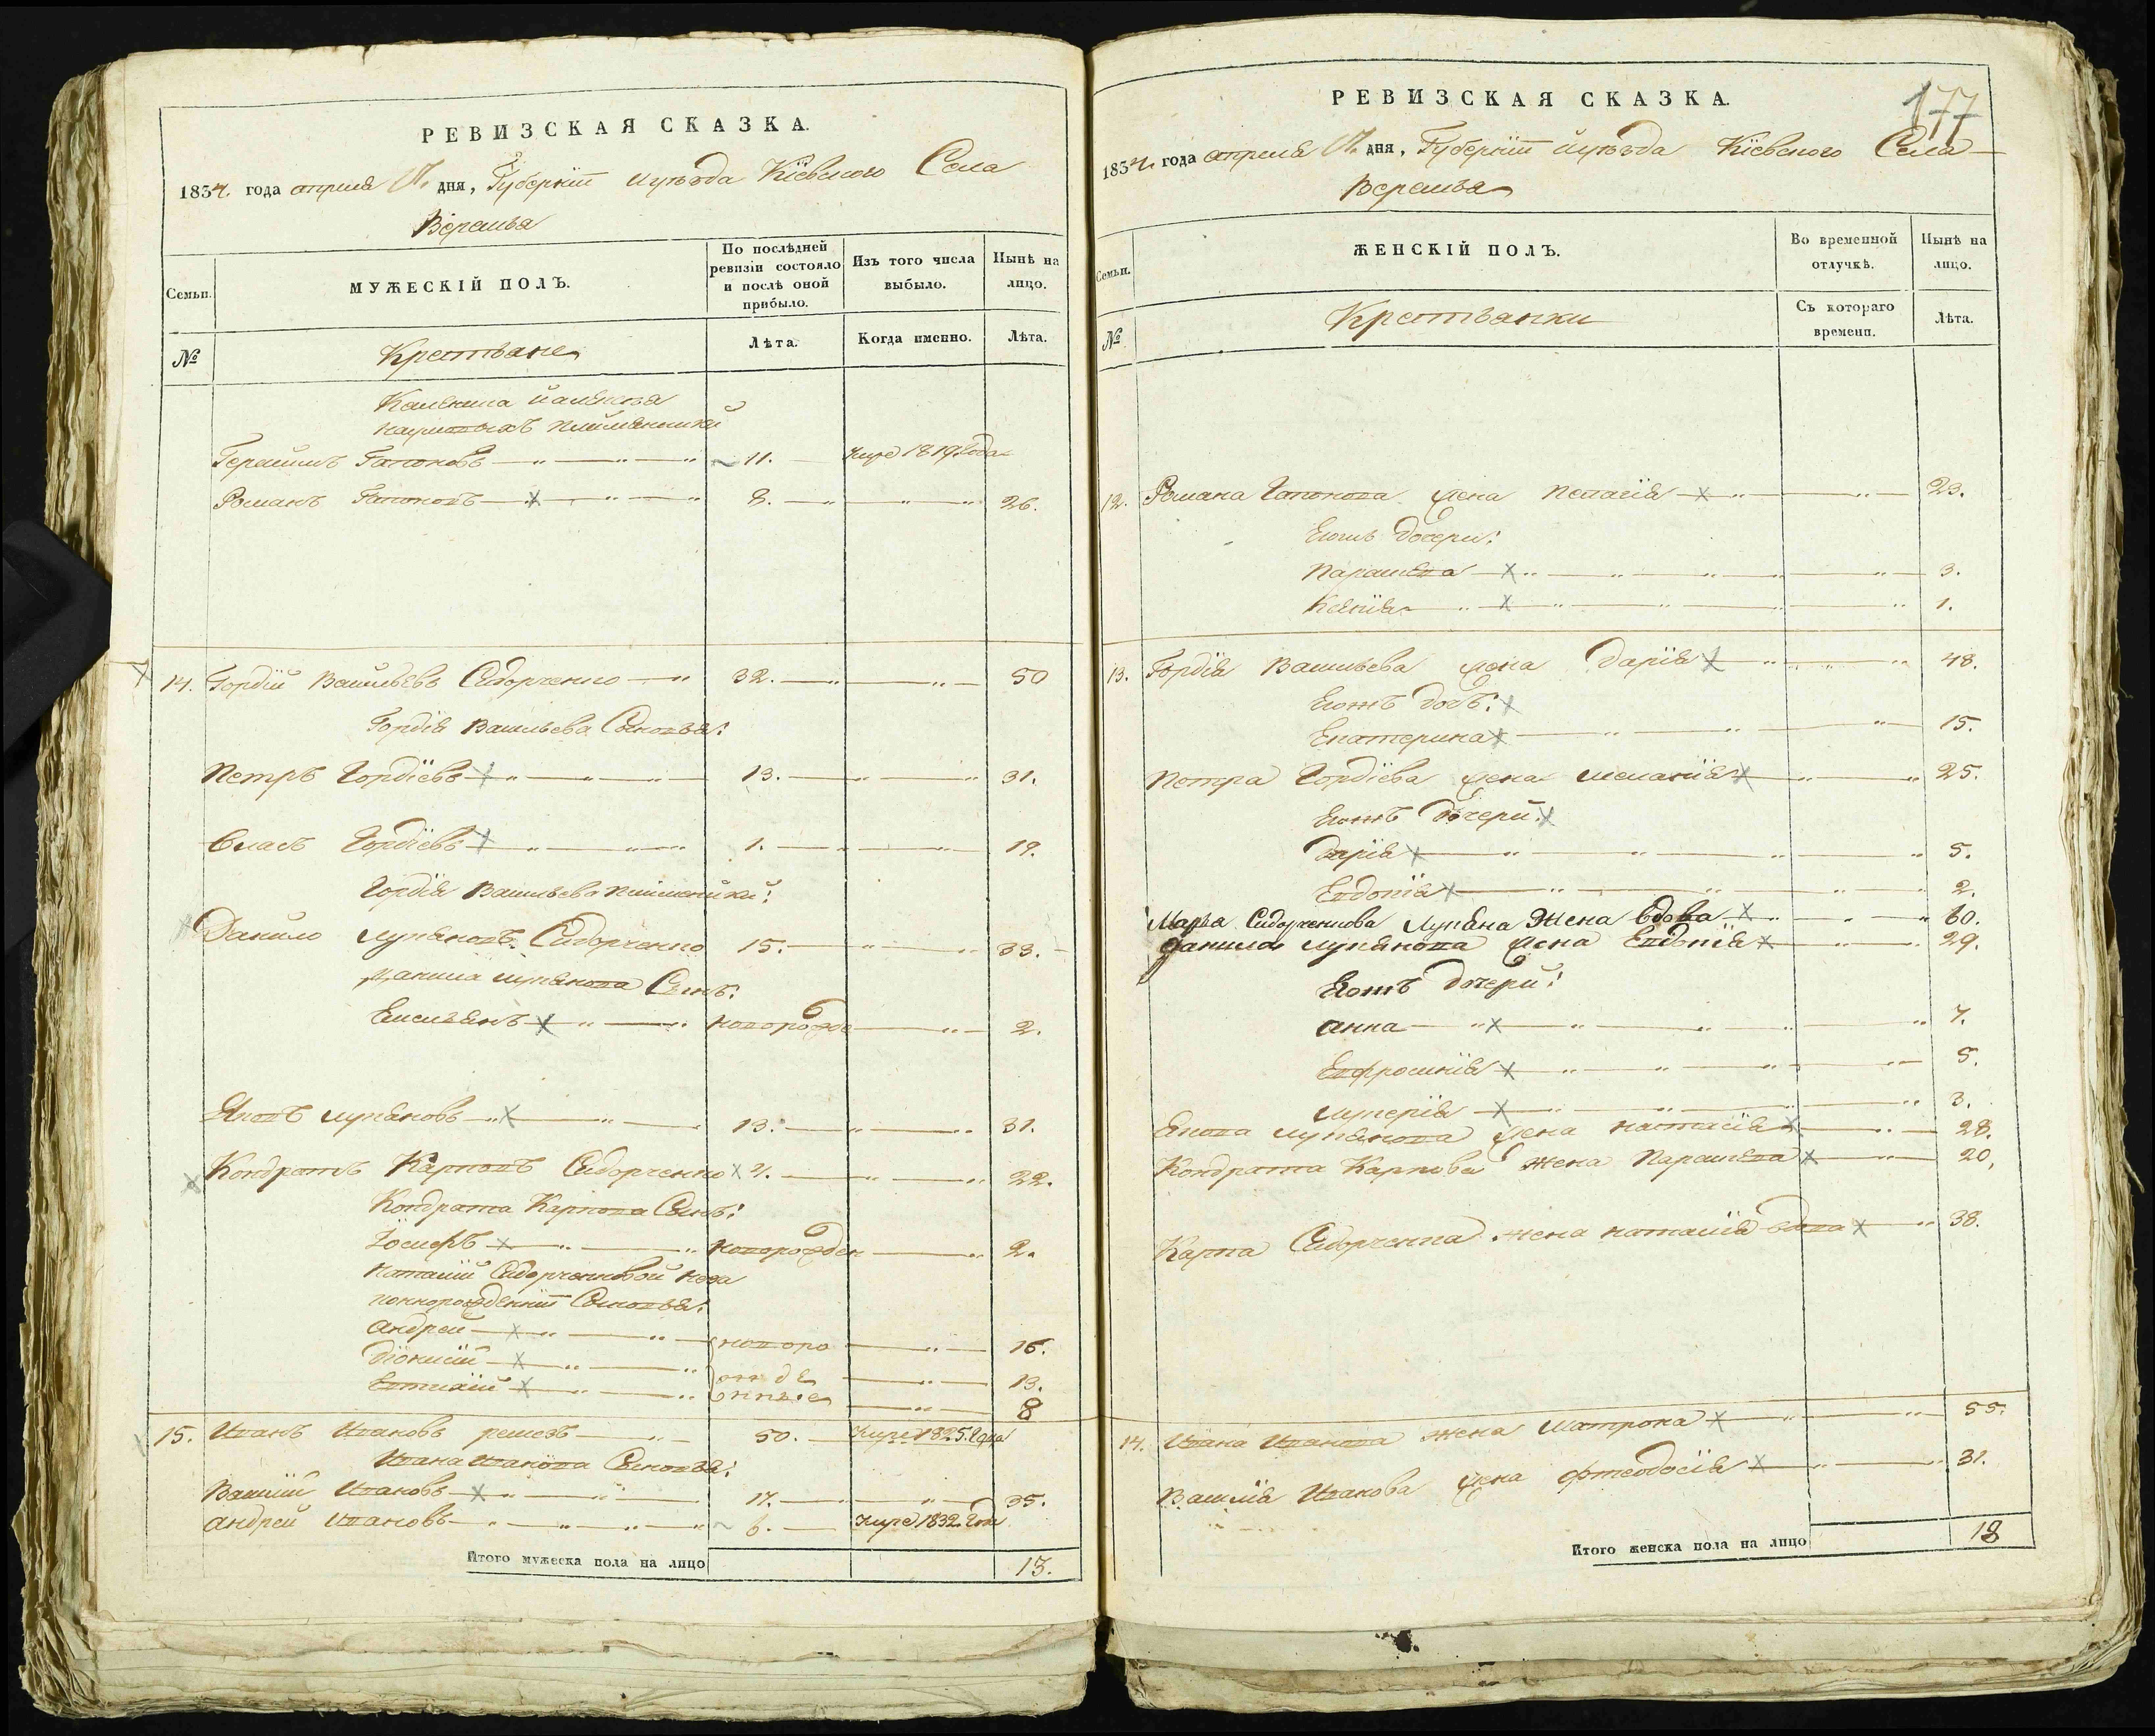 РЕВИЗСКАЯ СКАЗКА.
1834. года апреля дня, Губернїи и уѣзда Кіевского Села
Верешья
Семьи.
МУЖЕСКІЙ ПОЛЪ.
По послѣдней ревизіи состояло и послѣ оной прибыло.
Изъ того числа выбыло.
Нынѣ на лицо.
№
Крестьяне
Лѣта.
Когда именно.
Лѣта.
племянники
Герасимъ Гапоновъ 11. 1819. года
Романъ Гапоновъ 8. 26.
14. Гордїй Васильевъ Сидорченко 32. 50
Гордїя Васильева Сыновья:
Петръ Гордїевъ 13. 31.
Власъ Гордїевъ 1. 19.
Гордїя Васильева племянники:
Данило Лукяновъ Сидорченко 15. 33.
Данила Лукянова Сынъ:
Емельянъ новорожде 2.
Яковъ Лукяновъ 13. 31.
Кондратъ Карповъ Сидорченко 4. 22.
Кондрата Карпова Сынъ:
Іосифъ новорожден 2.
Наталіи Сидорченковой
Сыновья:
Андрей новоро 16.
Діонисій жде 13.
Евтихій нные 8
15. Иванъ Ивановъ решезъ 50. 1825. года
Ивана Иванова Сыновья:
Василій Ивановъ 17. 35.
Андрей Ивановъ 6. 1832. года
Итого мужеска пола на лицо 13.
177
РЕВИЗСКАЯ СКАЗКА.
1834. года апреля дня, Губернїи и уѣзда Кіевского Села
Верешья
Семьи.
ЖЕНСКІЙ ПОЛЪ.
Во временной отлучкѣ.
Нынѣ на лицо.
№
Крестьянки
Съ котораго времени.
Лѣта.
12. Романа Гапонова жена Пелагїя 23.
Еготъ дочери:
Параскева 3.
Ксенїя 1.
13. Гордїя Васильева жена Дарїя 48.
Еготъ дочь:
Екатерина 15.
Петра Гордїева жена Меланїя 25.
Еготъ дочери:
Дарїя 5.
Евдокїя 2.
Марья Сидорченкова Лукяна Жена вдова 60.
Данила Лукянова жена Евдокїя 29.
Еготъ дочери:
Анна 7.
Евфросинїя 5.
Лукерїя 3.
Якова Лукянова жена Настасїя 28.
Кондрата Карпова жена Параскева 20.
Карпа Сидорченка жена Наталїя вдова 38.
14. Ивана Иванова жена Матрона 55.
Василїя Иванова жена Фтеодосїя 31.
Итого женска пола на лицо 18